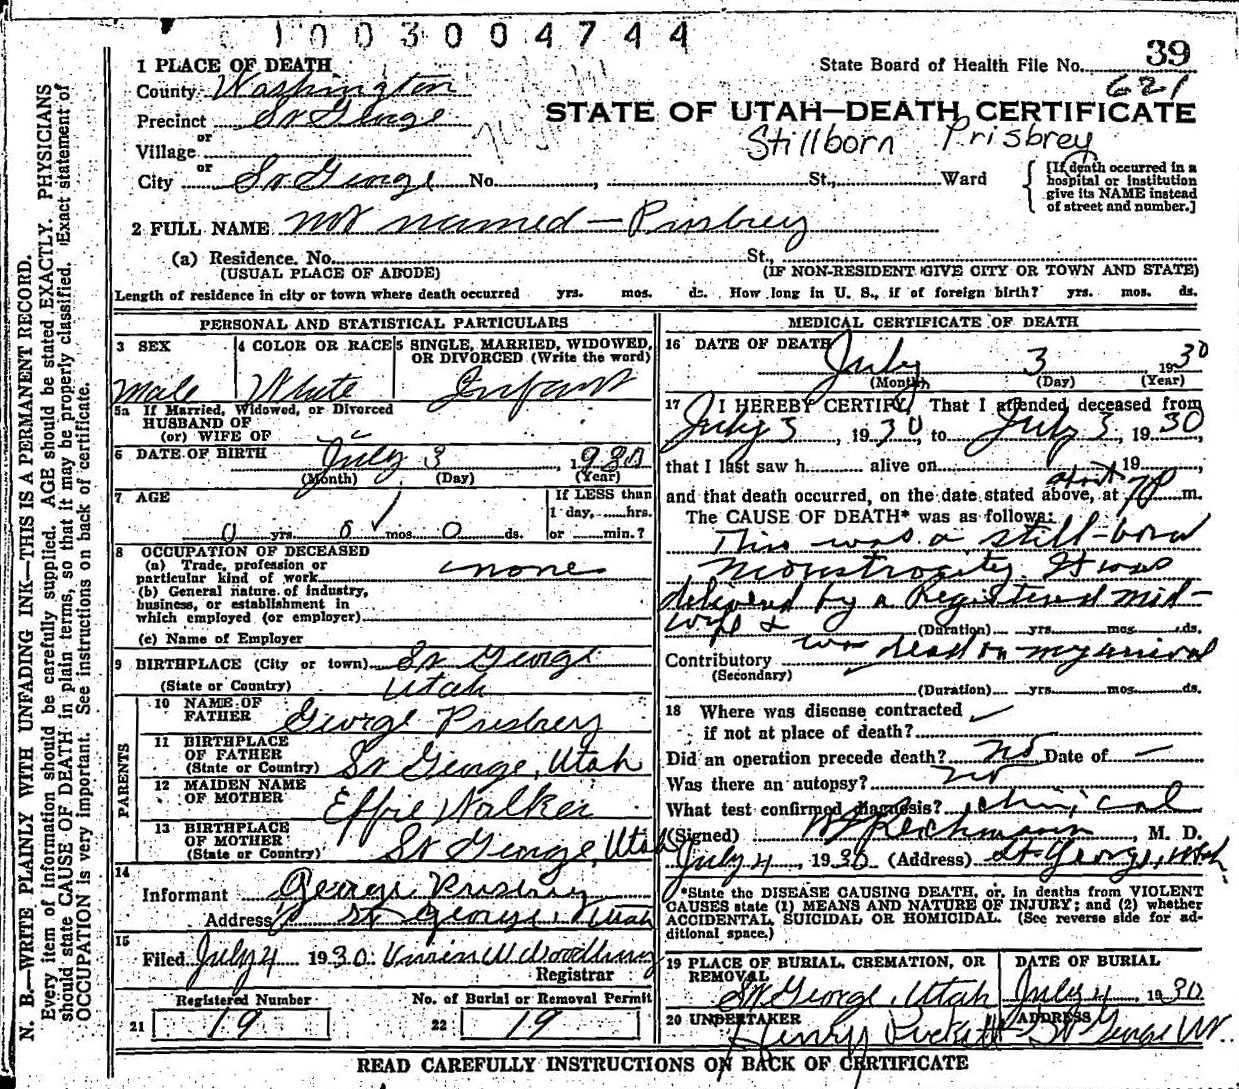 1003004744
1 PLACE OF DEATH
State Board of Health File No. 39
621
County Washington
STATE OF UTAH—DEATH CERTIFICATE
Precinct St George
Stillborn Prisbrey
or
Village
or
City St George No. , St., Ward
[If death occurred in a
hospital or institution
give its NAME instead
of street and number.]
2 FULL NAME not named — Prisbrey
(a) Residence. No. St.,
(USUAL PLACE OF ABODE) (IF NON-RESIDENT GIVE CITY OR TOWN AND STATE)
Length of residence in city or town where death occurred yrs. mos. ds. How long in U. S., if of foreign birth? yrs. mos. ds.
PERSONAL AND STATISTICAL PARTICULARS
3 SEX
Male
4 COLOR OR RACE
White
5 SINGLE, MARRIED, WIDOWED,
OR DIVORCED (Write the word)
Infant
5a If Married, Widowed, or Divorced
HUSBAND OF
(or) WIFE OF
6 DATE OF BIRTH July 3, 1930
(Month) (Day) (Year)
7 AGE
0 yrs. 0 mos. 0 ds.
If LESS than
1 day, hrs.
or min.?
8 OCCUPATION OF DECEASED
(a) Trade, profession or
particular kind of work none
(b) General nature of industry,
business, or establishment in
which employed (or employer)
(c) Name of Employer
9 BIRTHPLACE (City or town) St George
(State or Country) Utah
PARENTS
10 NAME OF
FATHER George Prisbrey
11 BIRTHPLACE
OF FATHER
(State or Country) St George, Utah
12 MAIDEN NAME
OF MOTHER Effie Walker
13 BIRTHPLACE
OF MOTHER
(State or Country) St George, Utah
14
Informant George Prisbrey
Address St George, Utah
15
Filed July 4 1930
Registrar
Registered Number
21 19
No. of Burial or Removal Permit
22 19
MEDICAL CERTIFICATE OF DEATH
16 DATE OF DEATH
July 3 1930
(Month) (Day) (Year)
17 I HEREBY CERTIFY, That I attended deceased from
July 3, 1930, to July 3, 1930,
that I last saw h alive on 19 ,
and that death occurred, on the date stated above, at about 7 P m.
The CAUSE OF DEATH* was as follows:
This was a still-born
monstrosity. It was
delivered by a Registered mid-
wife &
(Duration) yrs. mos. ds.
Contributory was dead on my arrival
(Secondary)
(Duration) yrs. mos. ds.
18 Where was disease contracted
if not at place of death?
Did an operation precede death? no Date of —
Was there an autopsy? no
What test confirmed diagnosis? clinical
(Signed) Reichmann, M. D.
July 4, 1930 (Address) St George, Utah
*State the DISEASE CAUSING DEATH, or, in deaths from VIOLENT
CAUSES state (1) MEANS AND NATURE OF INJURY; and (2) whether
ACCIDENTAL, SUICIDAL OR HOMICIDAL. (See reverse side for ad-
ditional space.)
19 PLACE OF BURIAL, CREMATION, OR
REMOVAL
St George, Utah
DATE OF BURIAL
July 4, 1930
20 UNDERTAKER
Henry Pickett
ADDRESS
St George Ut.
READ CAREFULLY INSTRUCTIONS ON BACK OF CERTIFICATE
N. B.—WRITE PLAINLY WITH UNFADING INK—THIS IS A PERMANENT RECORD.
Every item of information should be carefully supplied. AGE should be stated EXACTLY. PHYSICIANS
should state CAUSE OF DEATH in plain terms, so that it may be properly classified. Exact statement of
OCCUPATION is very important. See instructions on back of certificate.